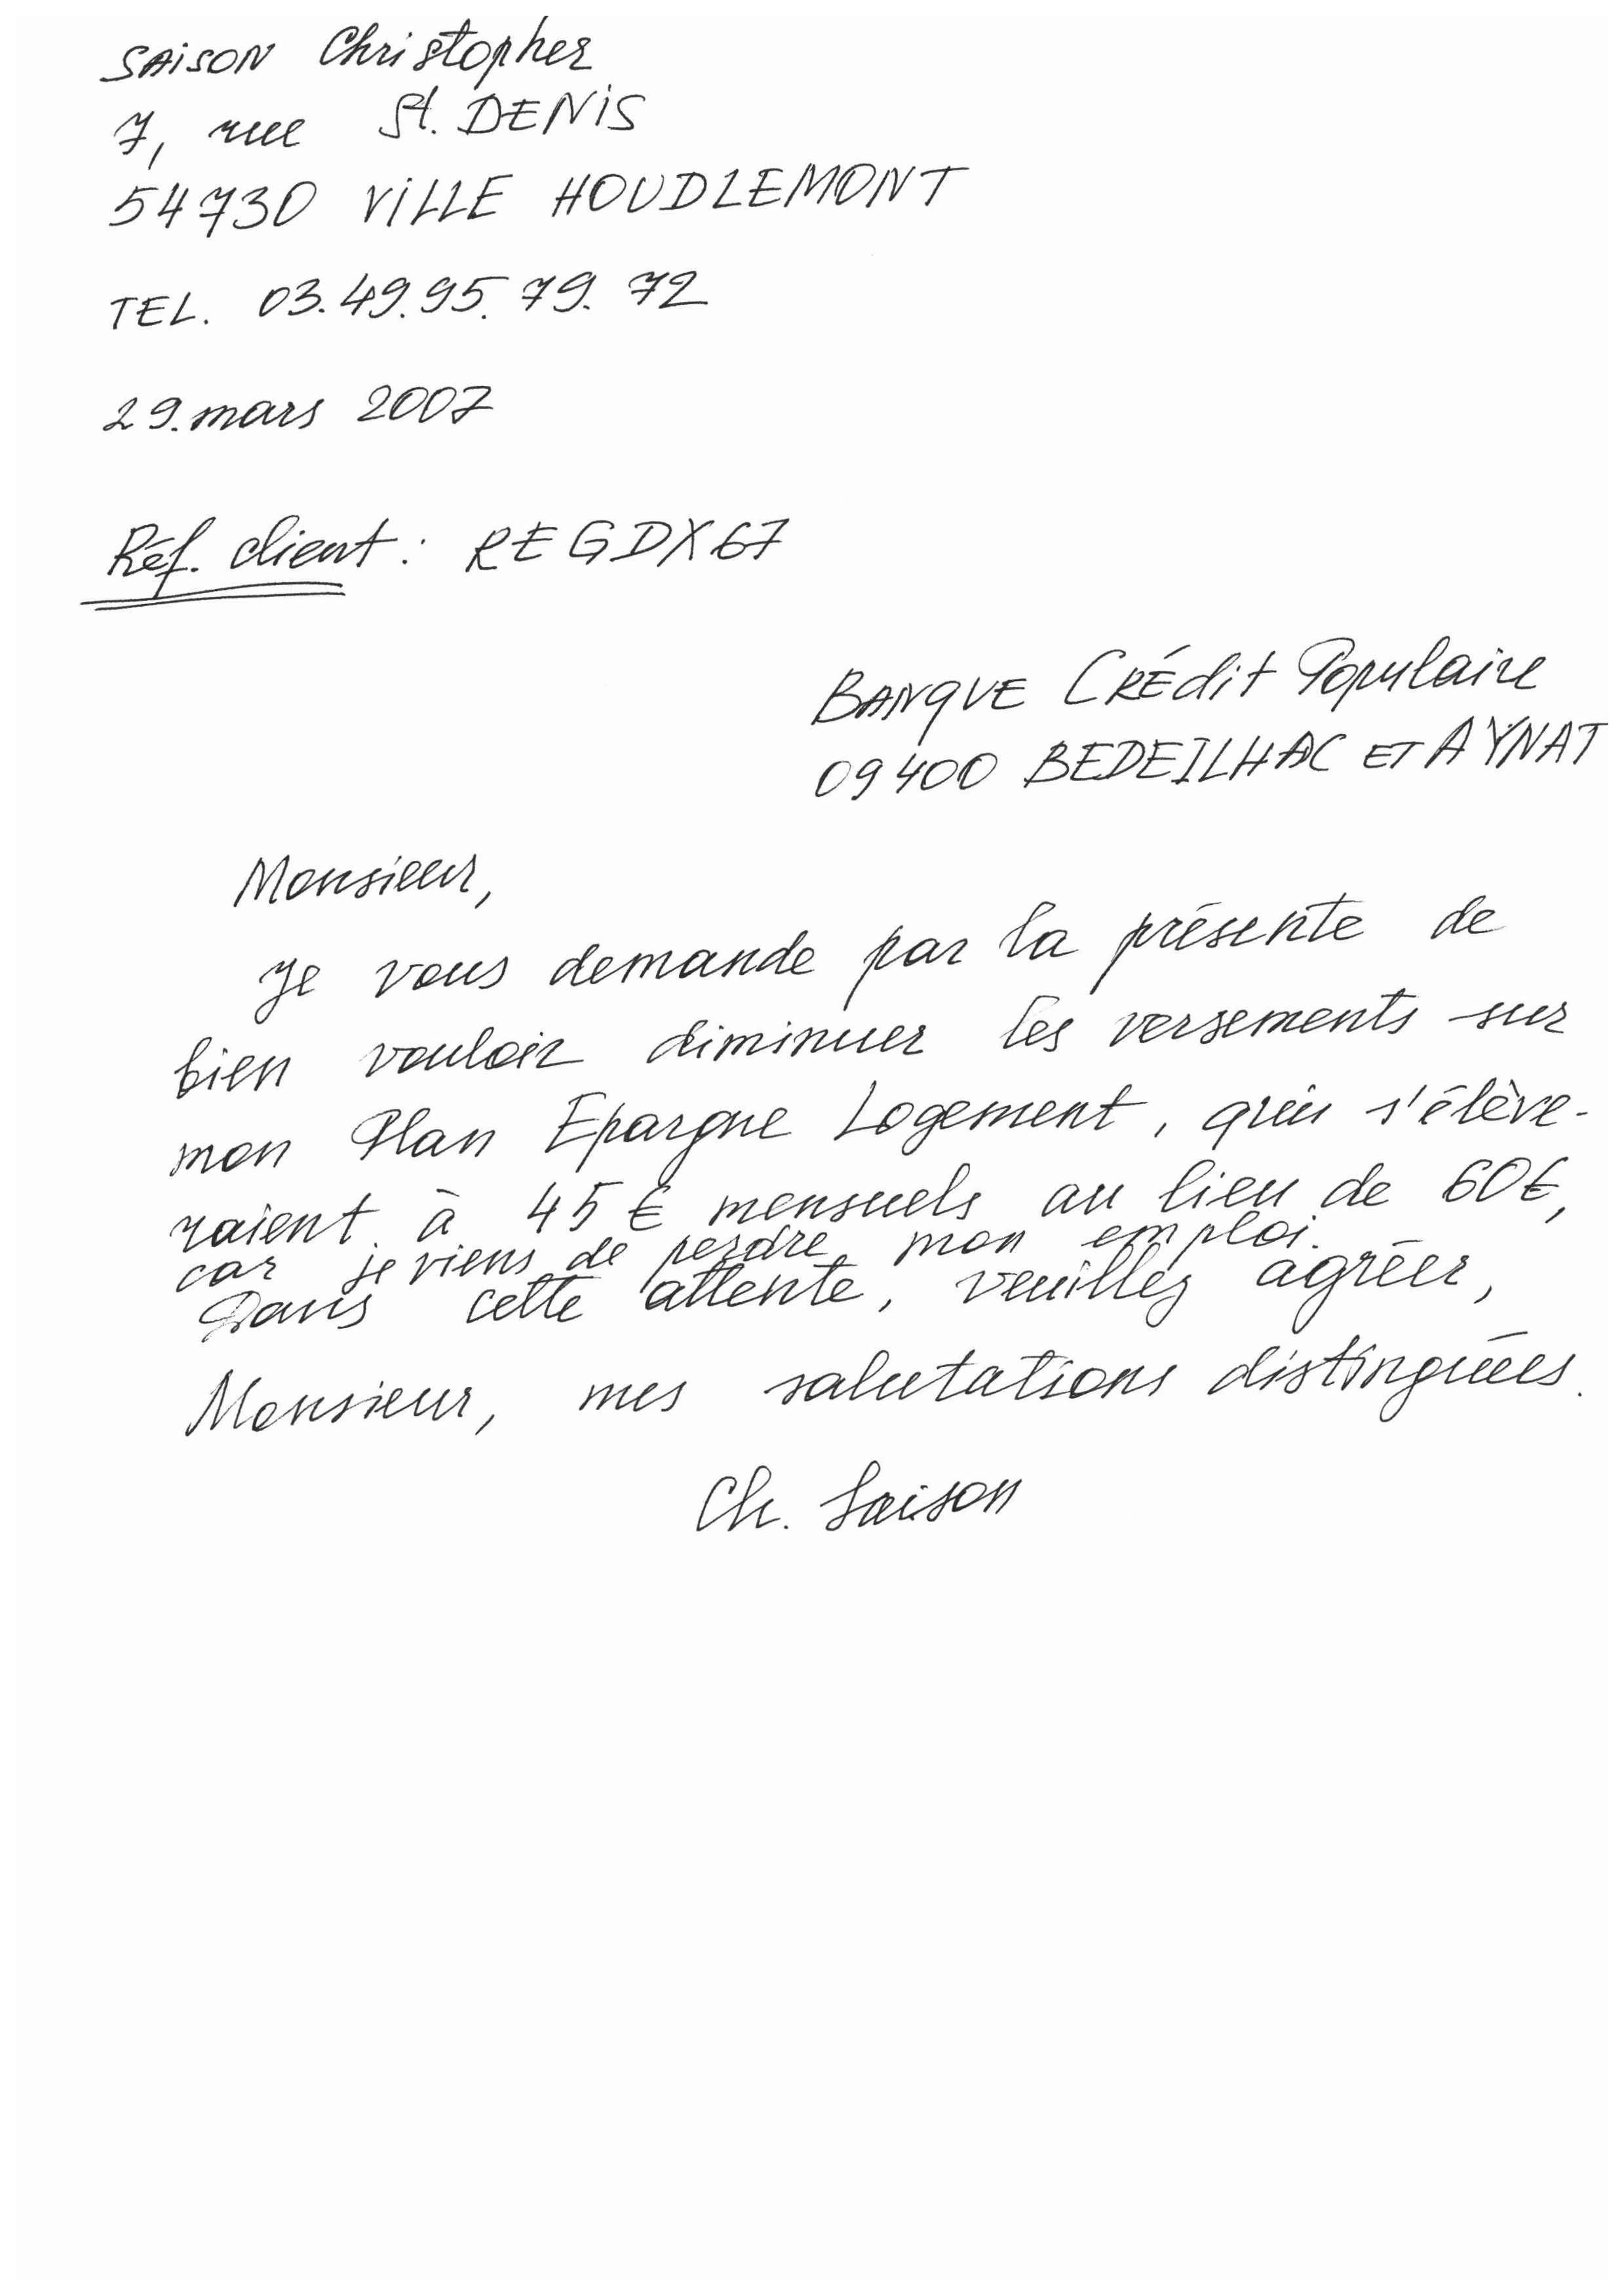 SAISON Christopher
7, rue St. DENIS
54730 VILLE HOUDLEMONT
TEL. 03.49.95.79.72
29.mars 2007
Réf. client : REGDX67
BANQUE CRÉdit Populaire
09400 BEDEILHAC ET AYNAT
Monsieur,
Je vous demande par la présente de
bien vouloir diminuer les versements sur
mon Plan Epargne Logement, qui s'élève-
raient à 45 € mensuels au lieu de 60€,
car je viens de perdre mon emploi.
Dans cette attente, veuillez agréer,
Monsieur, mes salutations distinguées.
Ch. Saison